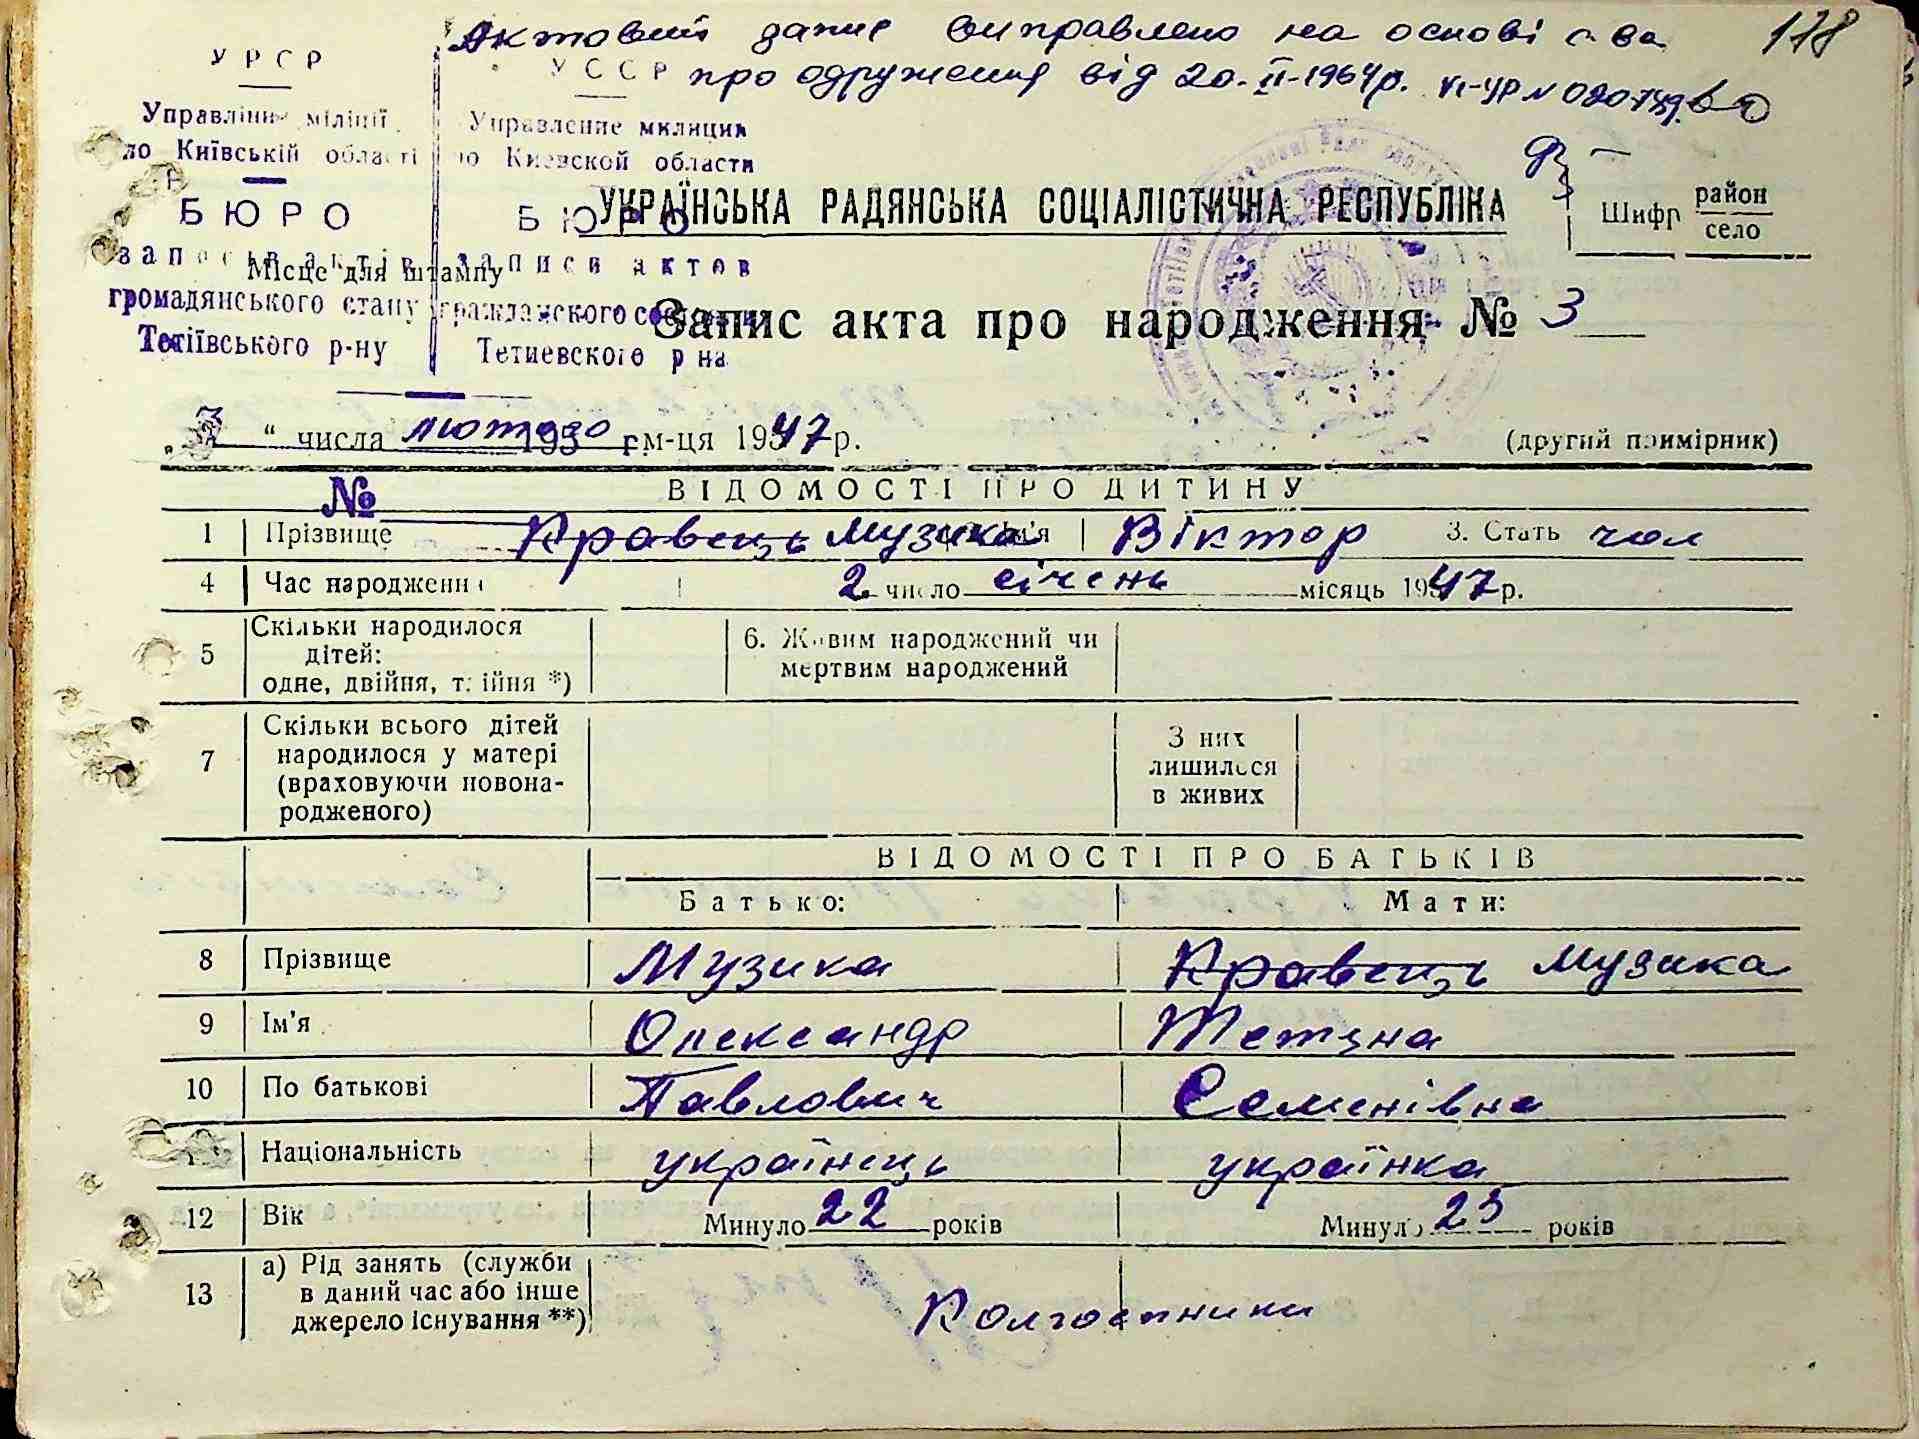 Актовий запис виправлено на основі с-ва 118
про одруження від 20-II-1964р. VI-УР № 020489
УРСР УССР
Управління міліції Управление милиции
по Київській області по Киевской области
БЮРО БЮРО
записів актів записи актов
громадянського стану гражданского состояния
Тетіївського р-ну Тетиевского р на
Місце для штампу
195 г.
№
УКРАЇНСЬКА РАДЯНСЬКА СОЦІАЛІСТИЧНА РЕСПУБЛІКА
Шифр район
село
Запис акта про народження № 3
„3“ числа лютого м-ця 1947 р. (другий примірник)
ВІДОМОСТІ ПРО ДИТИНУ
1 Прізвище Кравець Музика Ім'я Віктор 3. Стать чол
4 Час народження 2 число січень місяць 1947 р.
5 Скільки народилося
дітей:
одне, двійня, трійня *)
6. Живим народжений чи
мертвим народжений
7 Скільки всього дітей
народилося у матері
(враховуючи новона-
родженого)
З них
лишилося
в живих
ВІДОМОСТІ ПРО БАТЬКІВ
Батько: Мати:
8 Прізвище Музика Кравець Музика
9 Ім'я Олександр Тетяна
10 По батькові Павлович Семенівна
Національність українець українка
12 Вік Минуло 22 років Минуло 23 років
13 а) Рід занять (служби
в даний час або інше
джерело існування **)
Колгоспники